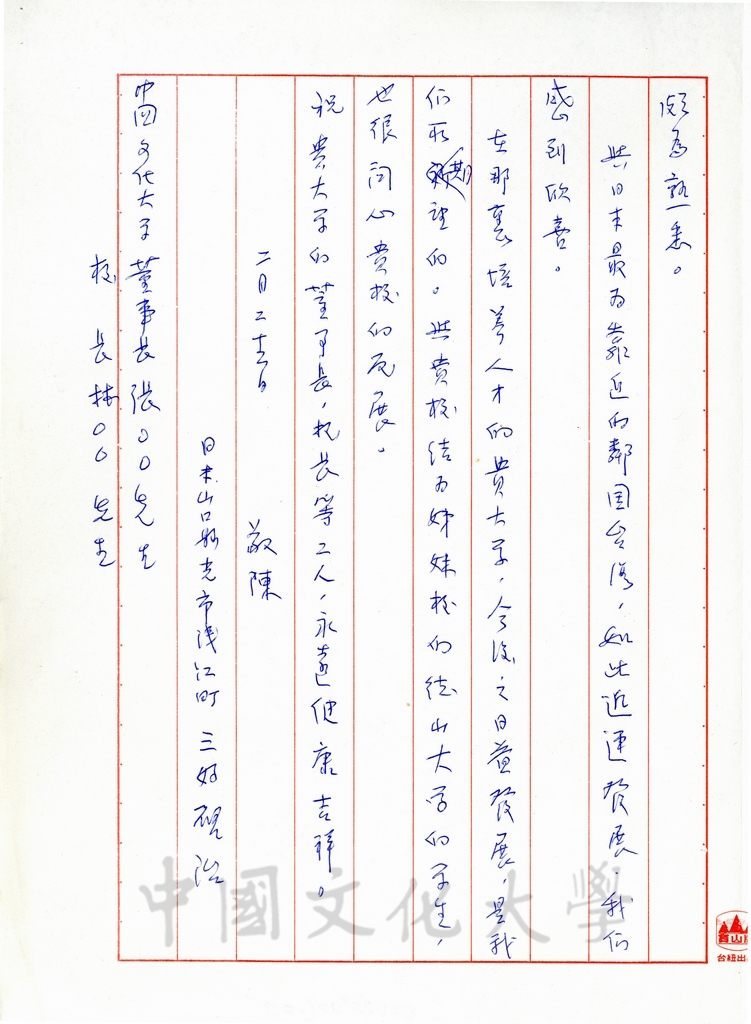 頗為熟悉。
與日本最為靠近的鄰国台湾，如此迅速發展，我们
感到欣喜。
在那裏培养人才的貴大学，今後之日益發展，是我
们所期望的。與貴校结为姊妹校的德山大学的学生，
也很関心貴校的发展。
祝貴大学的董事長，校長等工人，永遠健康吉祥。
二月二十五日
敬陳
日本山口縣光市浅江町 三好
中国文化大学董事長 張○○先生
校 長 林○○先生
中國文化大學